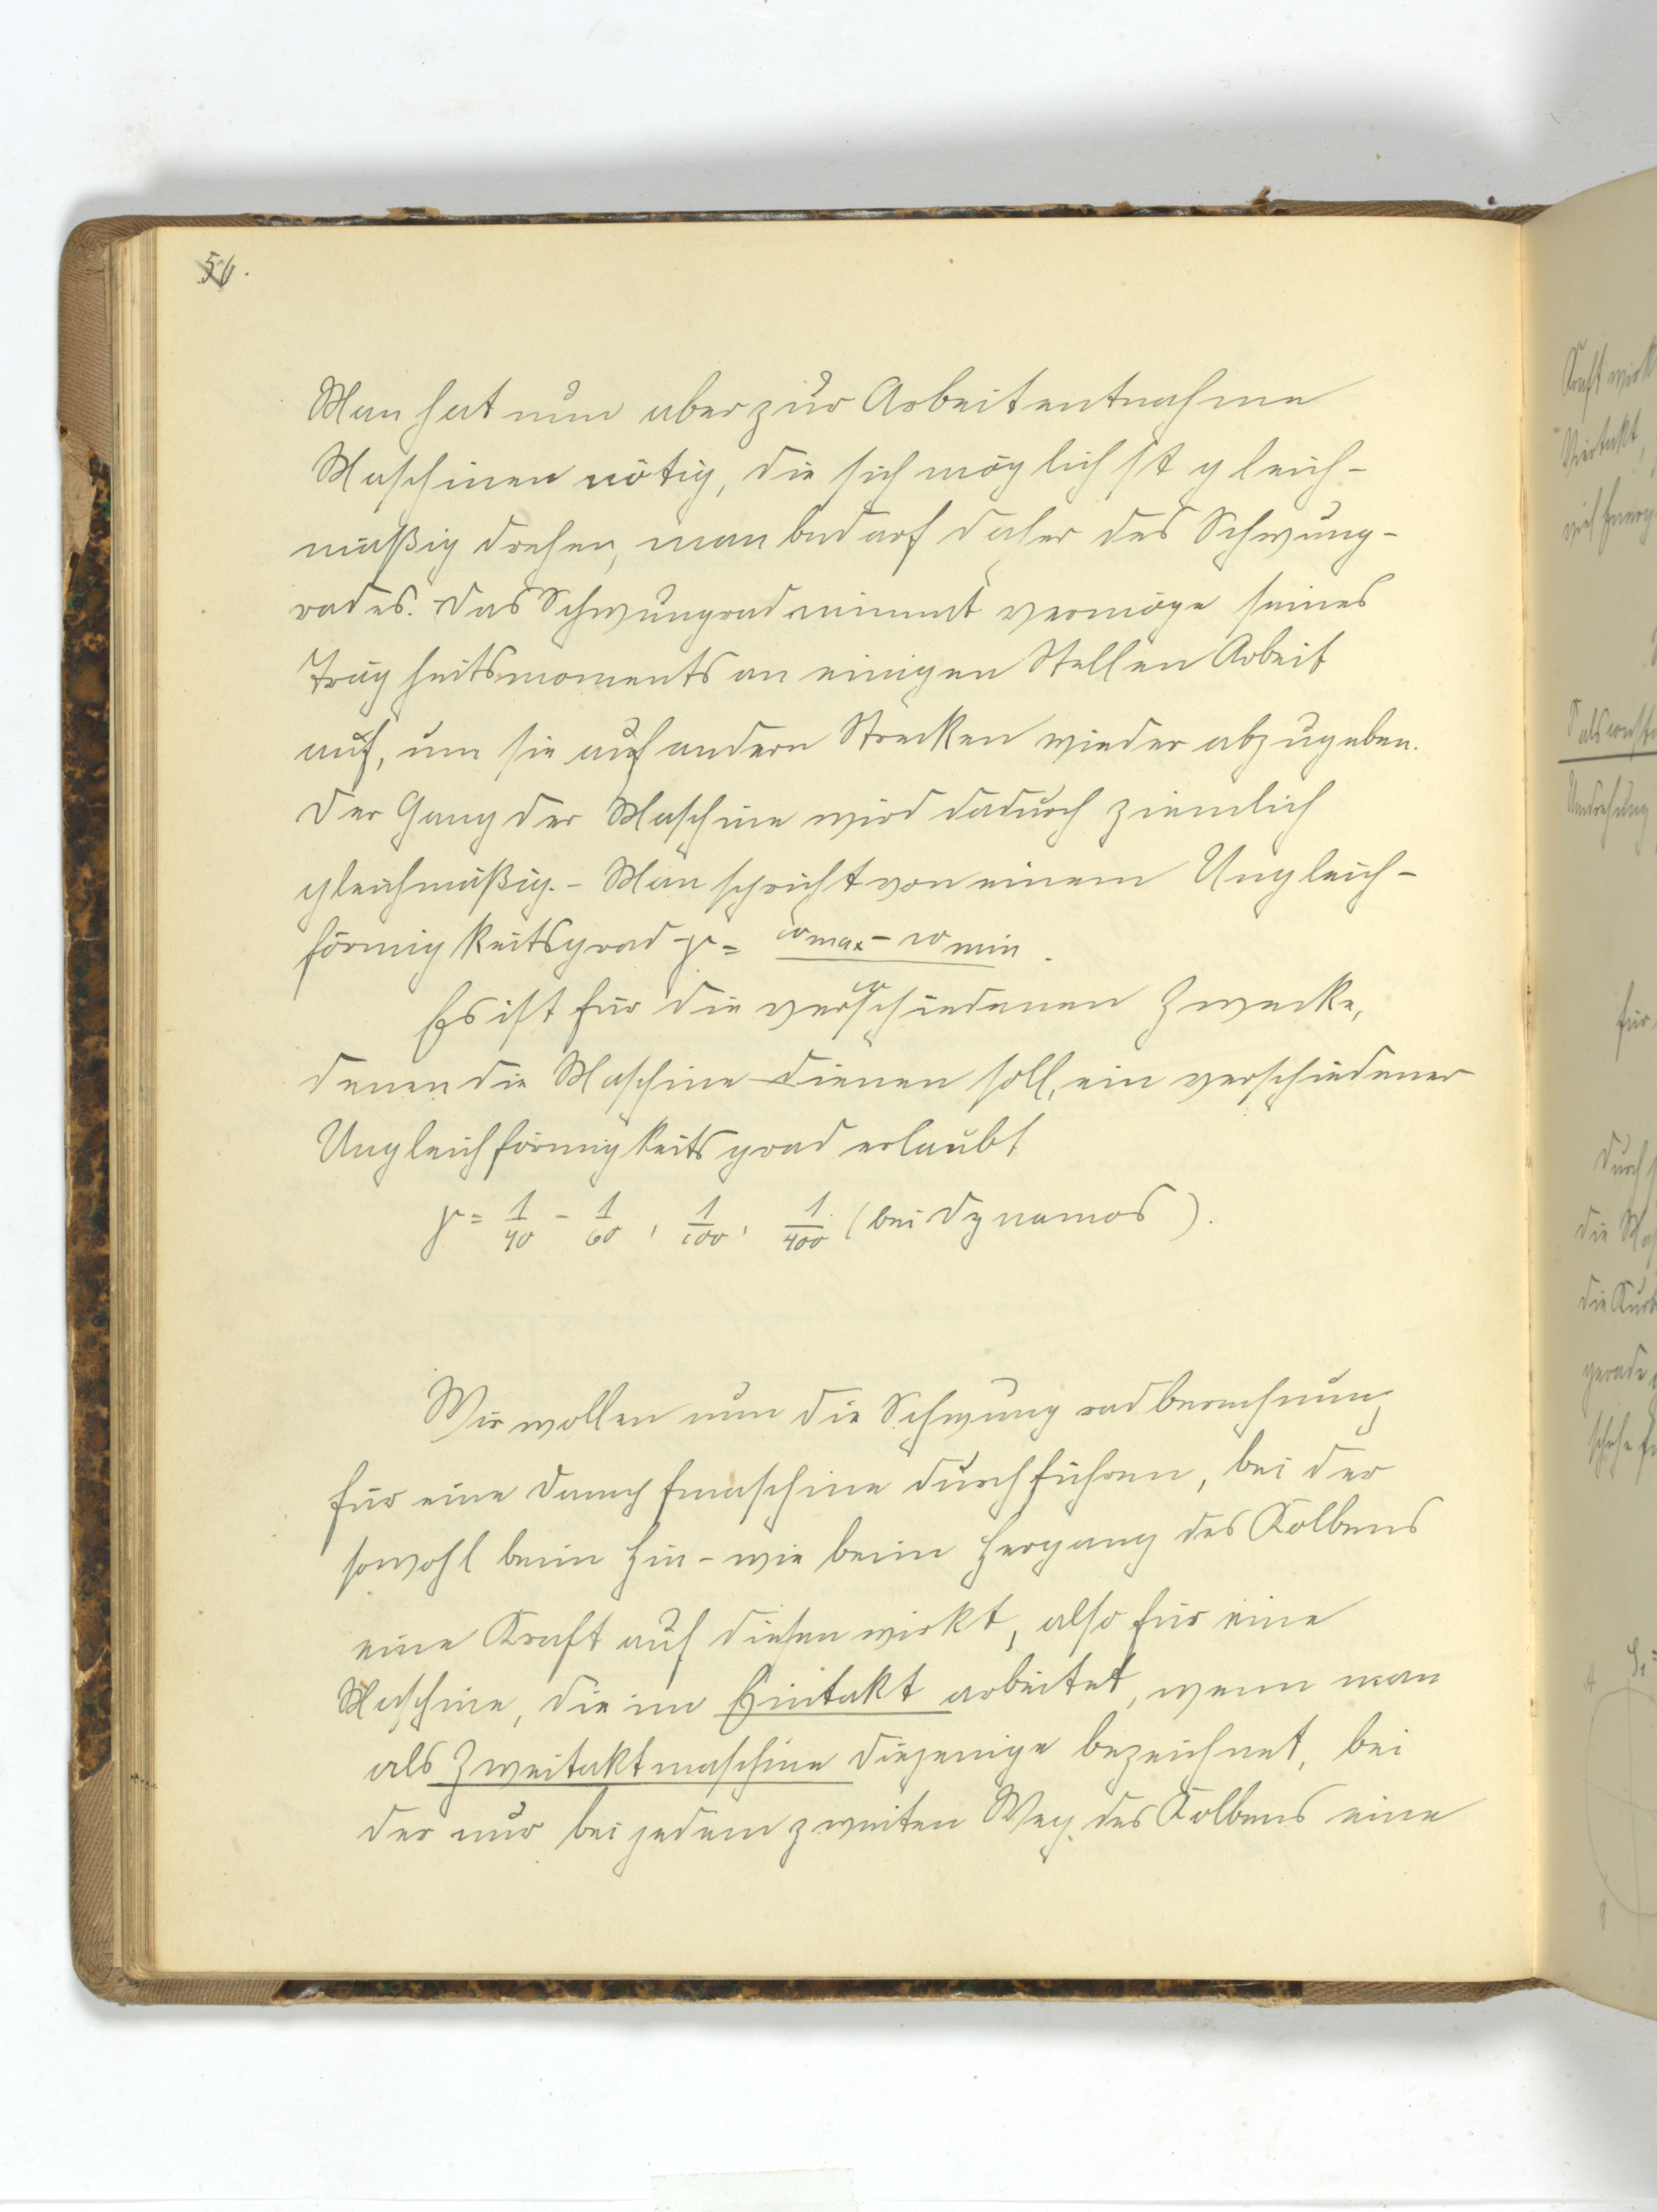 56.
Man hat nun aber zur Arbeitentnahme
Maschinen nötig, die sich möglichst gleich-
mäßig drehen, man bedarf daher des Schwung-
rades. Das Schwungrad nimmt vermöge seines
Trägheitsmoments an einigen Stellen Arbeit
auf, um sie auf andern Strecken wieder abzugeben.
Der Gang der Maschine wird dadurch ziemlich
gleichmäßig. - Man spricht von einem Ungleich-
förmigkeitsgrad γ = (ω max - ω min) / ω.
Es ist für die verschiedenen Zwecke,
denen die Maschine dienen soll, ein verschiedener
Ungleichförmigkeitsgrad erlaubt
γ = 1/40 - 1/60, 1/100, 1/400 (bei Dynamos).
Wir wollen nun die Schwungradberechnung
für eine Dampfmaschine durchführen, bei der
sowohl beim Hin- wie beim Hergang des Kolbens
eine Kraft auf diesen wirkt, also für eine
Maschine, die im Eintakt arbeitet, wenn man
als Zweitaktmaschine diejenige bezeichnet, bei
der nur bei jedem zweiten Weg des Kolbens eine
Kraft wirkt
Viertakt,
für
durch
die
gerade